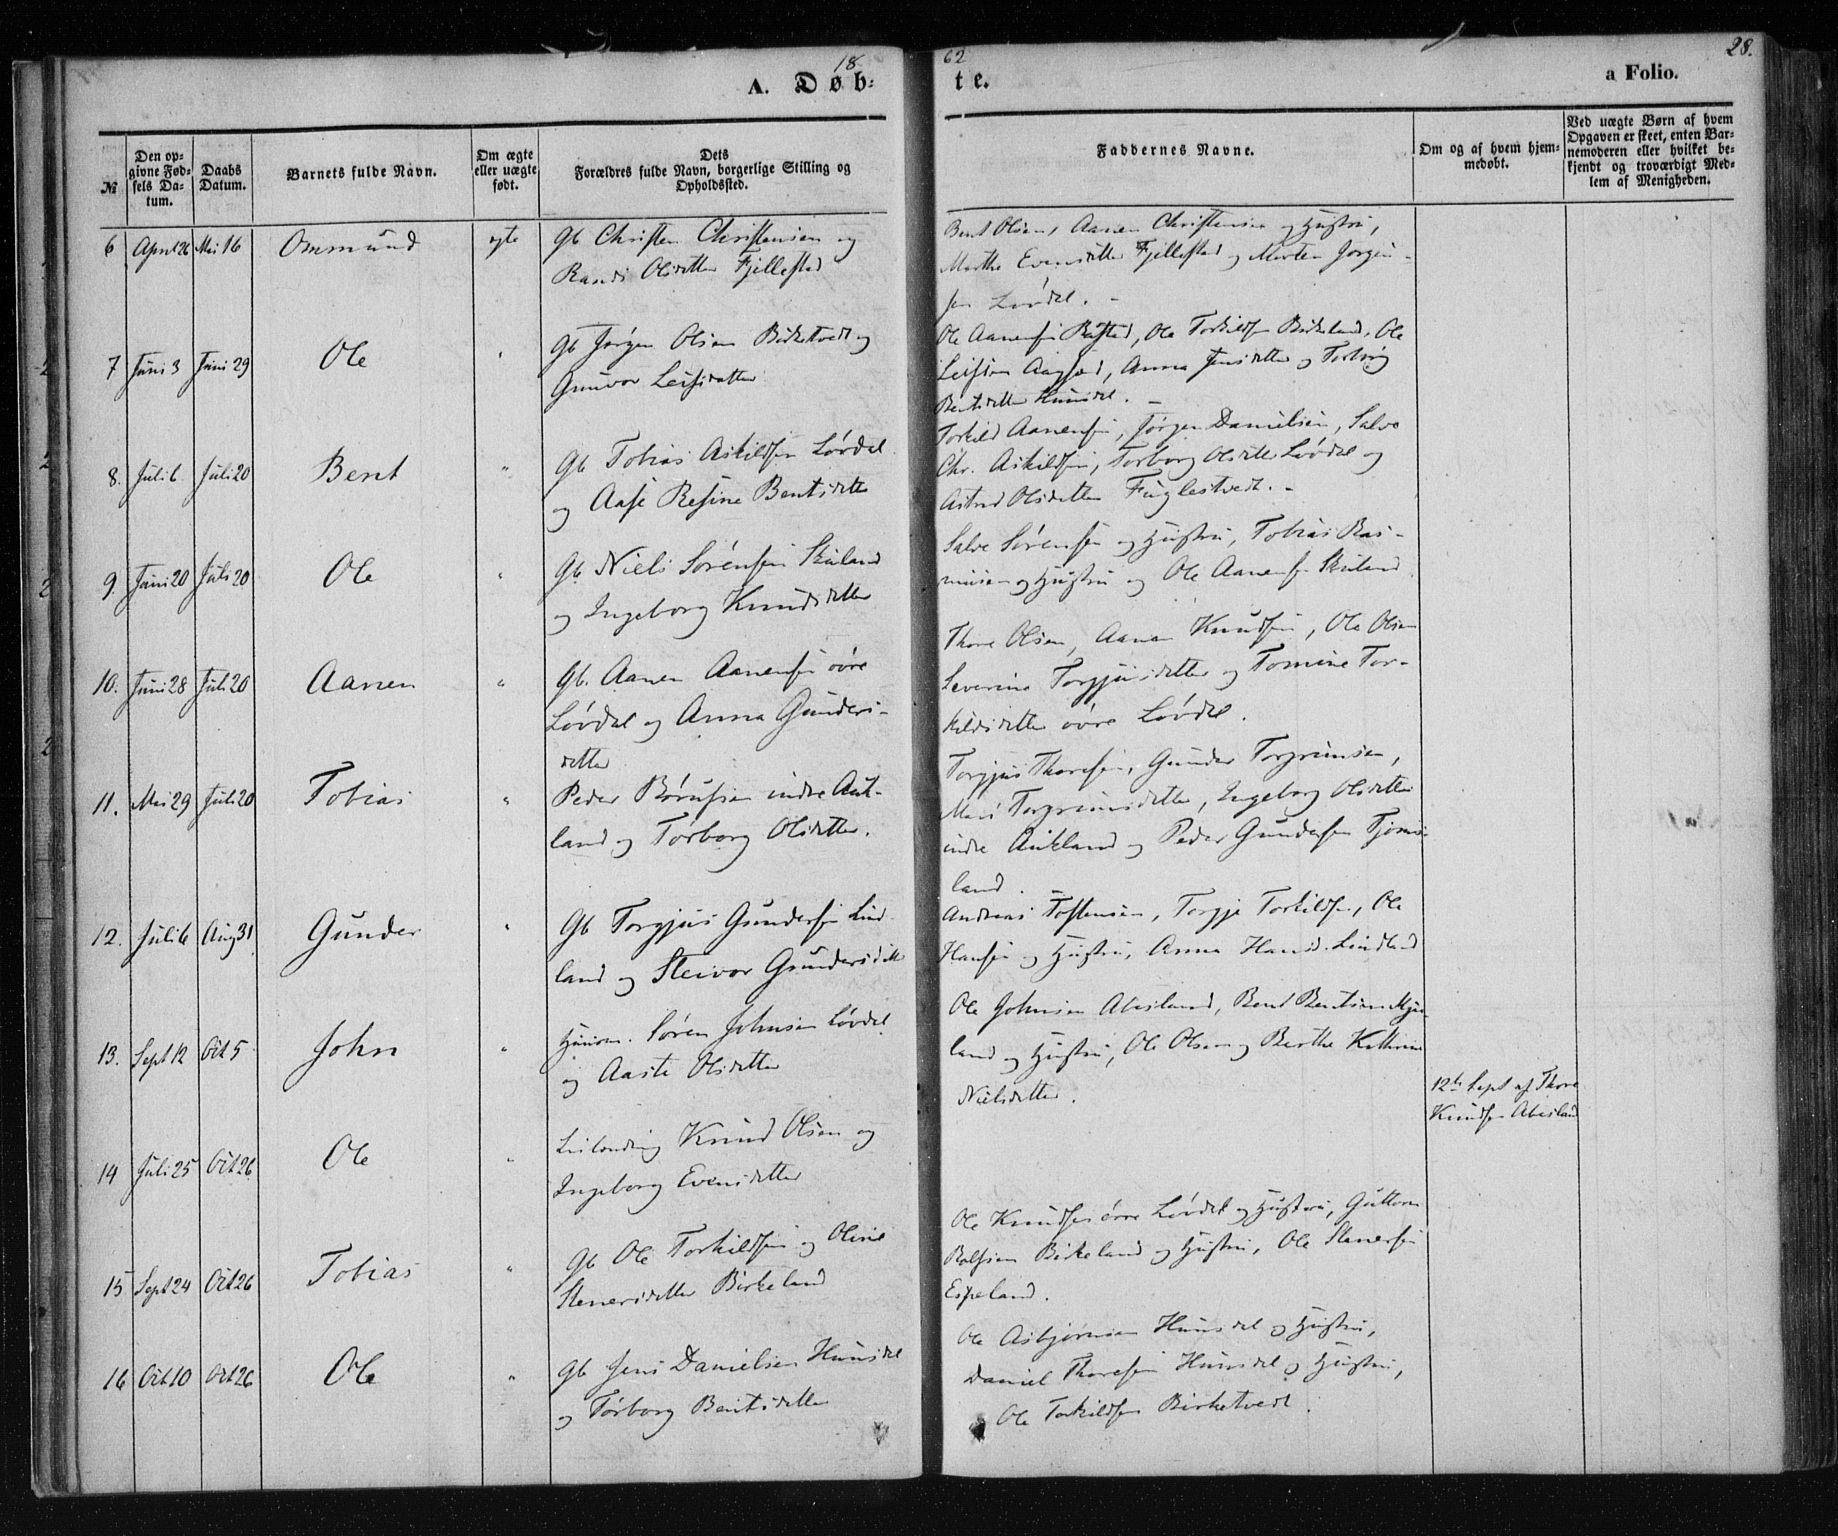 18 62 28.
A. Døb: te. a Folio.
№
Den op-
givne Fød-
sels Da-
tum.
Daabs
Datum.
Barnets fulde Navn.
Om ægte
eller uægte
født.
Dets
Forældres fulde Navn, borgerlige Stilling og
Opholdssted.
Faddernes Navne.
Om og af hvem hjem-
medøbt.
Ved uægte Børn af hvem
Opgaven er skeet, enten Bar-
nemoderen eller hvilket be-
kjendt og troværdigt Med-
lem af Menigheden.
6 April 26 Mai 16 Ommund ægte Gb Christen Christensen og
Randi Olsdatter Fjellestad
Bent Olsen, Aanen Christensen og Hustru,
Marthe Evensdatter Fjellestad og Morten Jørgen-
sen Løvdal. -
7 Juni 3 Juni 29 Ole " Gb Jørgen Olsen Birketvedt og
Gunvor Leifsdatter
Ole Aanensen Refstad, Ole Torkildsen Birkeland, Ole
Leifsen, Anna Jensdatter og Torborg
Bentsdatter Hunsdal. -
8. Juli 6 Juli 20 Bent " Gb Tobias Askildsen Løvdal
og Aase Resine Bentsdatter
Torkild Aanensen, Jørgen Danielsen, Salve
Chr. Askildsen, Torborg Olsdatter Løvdal og
Astrid Olsdatter Fuglestvedt. -
9. Juni 20 Juli 20 Ole " Gb. Niels Sørensen Skuland
og Ingeborg Knudsdatter
Salve Sørensen og Hustru, Tobias Ras-
musen og Hustru og Ole Aanensen Skuland
10. Juni 28 Juli 20 Aanen " Gb. Aanen Aanensen øvre
Løvdal og Anna Gunders-
datter
Thore Olsen, Aanen Knudsen, Ole Olsen
Severine Torgjusdatter og Tomine Tor-
kildsdatter øvre Løvdal.
11. Mai 29 Juli 20 Tobias " Peder Børufsen indre Auk-
land og Torborg Olsdatter.
Torgjus Thoresen, Gunder Torgrimsen,
Mari Torgrimsdatter, Ingeborg Olsdatter
indre Aukland og Peder Gundersen Tjoms-
land.
12. Juli 6 Aug 31 Gunder " Gb Torgjus Gundersen Lind-
land og Steivor Gundersdatt
Andreas Tostensen, Torgje Torkildsen, Ole
Hansen og Hustru, Anna Hansd. Lindland
13. Sept 12 Oct 5 John " Husm. Søren Johnsen Løvdal
og Aaste Olsdatter
Ole Johnsen Abesland, Bent Bentsen Mju-
land og Hustru, Ole Olsen og Berthe Kathrine
Nielsdatter.
12te Sept af Thore
Knudsen Abesland
14 Juli 25 Oct 26 Ole " Leilænding Knud Olsen og
Ingeborg Evensdatter
15 Sept 24 Oct 26 Tobias " Gb Ole Torkildsen og Oline
Stenersdatter Birkeland
Ole Knudsen øvre Løvdal og Hustru, Guttorm
Rolfsen Birkeland og Hustru, Ole Stenersen
Espeland.
16 Oct 10 Oct 26 Ole " Gb Jens Danielsen Hunsdal
og Torborg Bentsdatter
Ole Asbjørnsen Hunsdal og Hustru,
Daniel Thoresen Hunsdal og Hustru,
Ole Torkildsen Birketvedt.